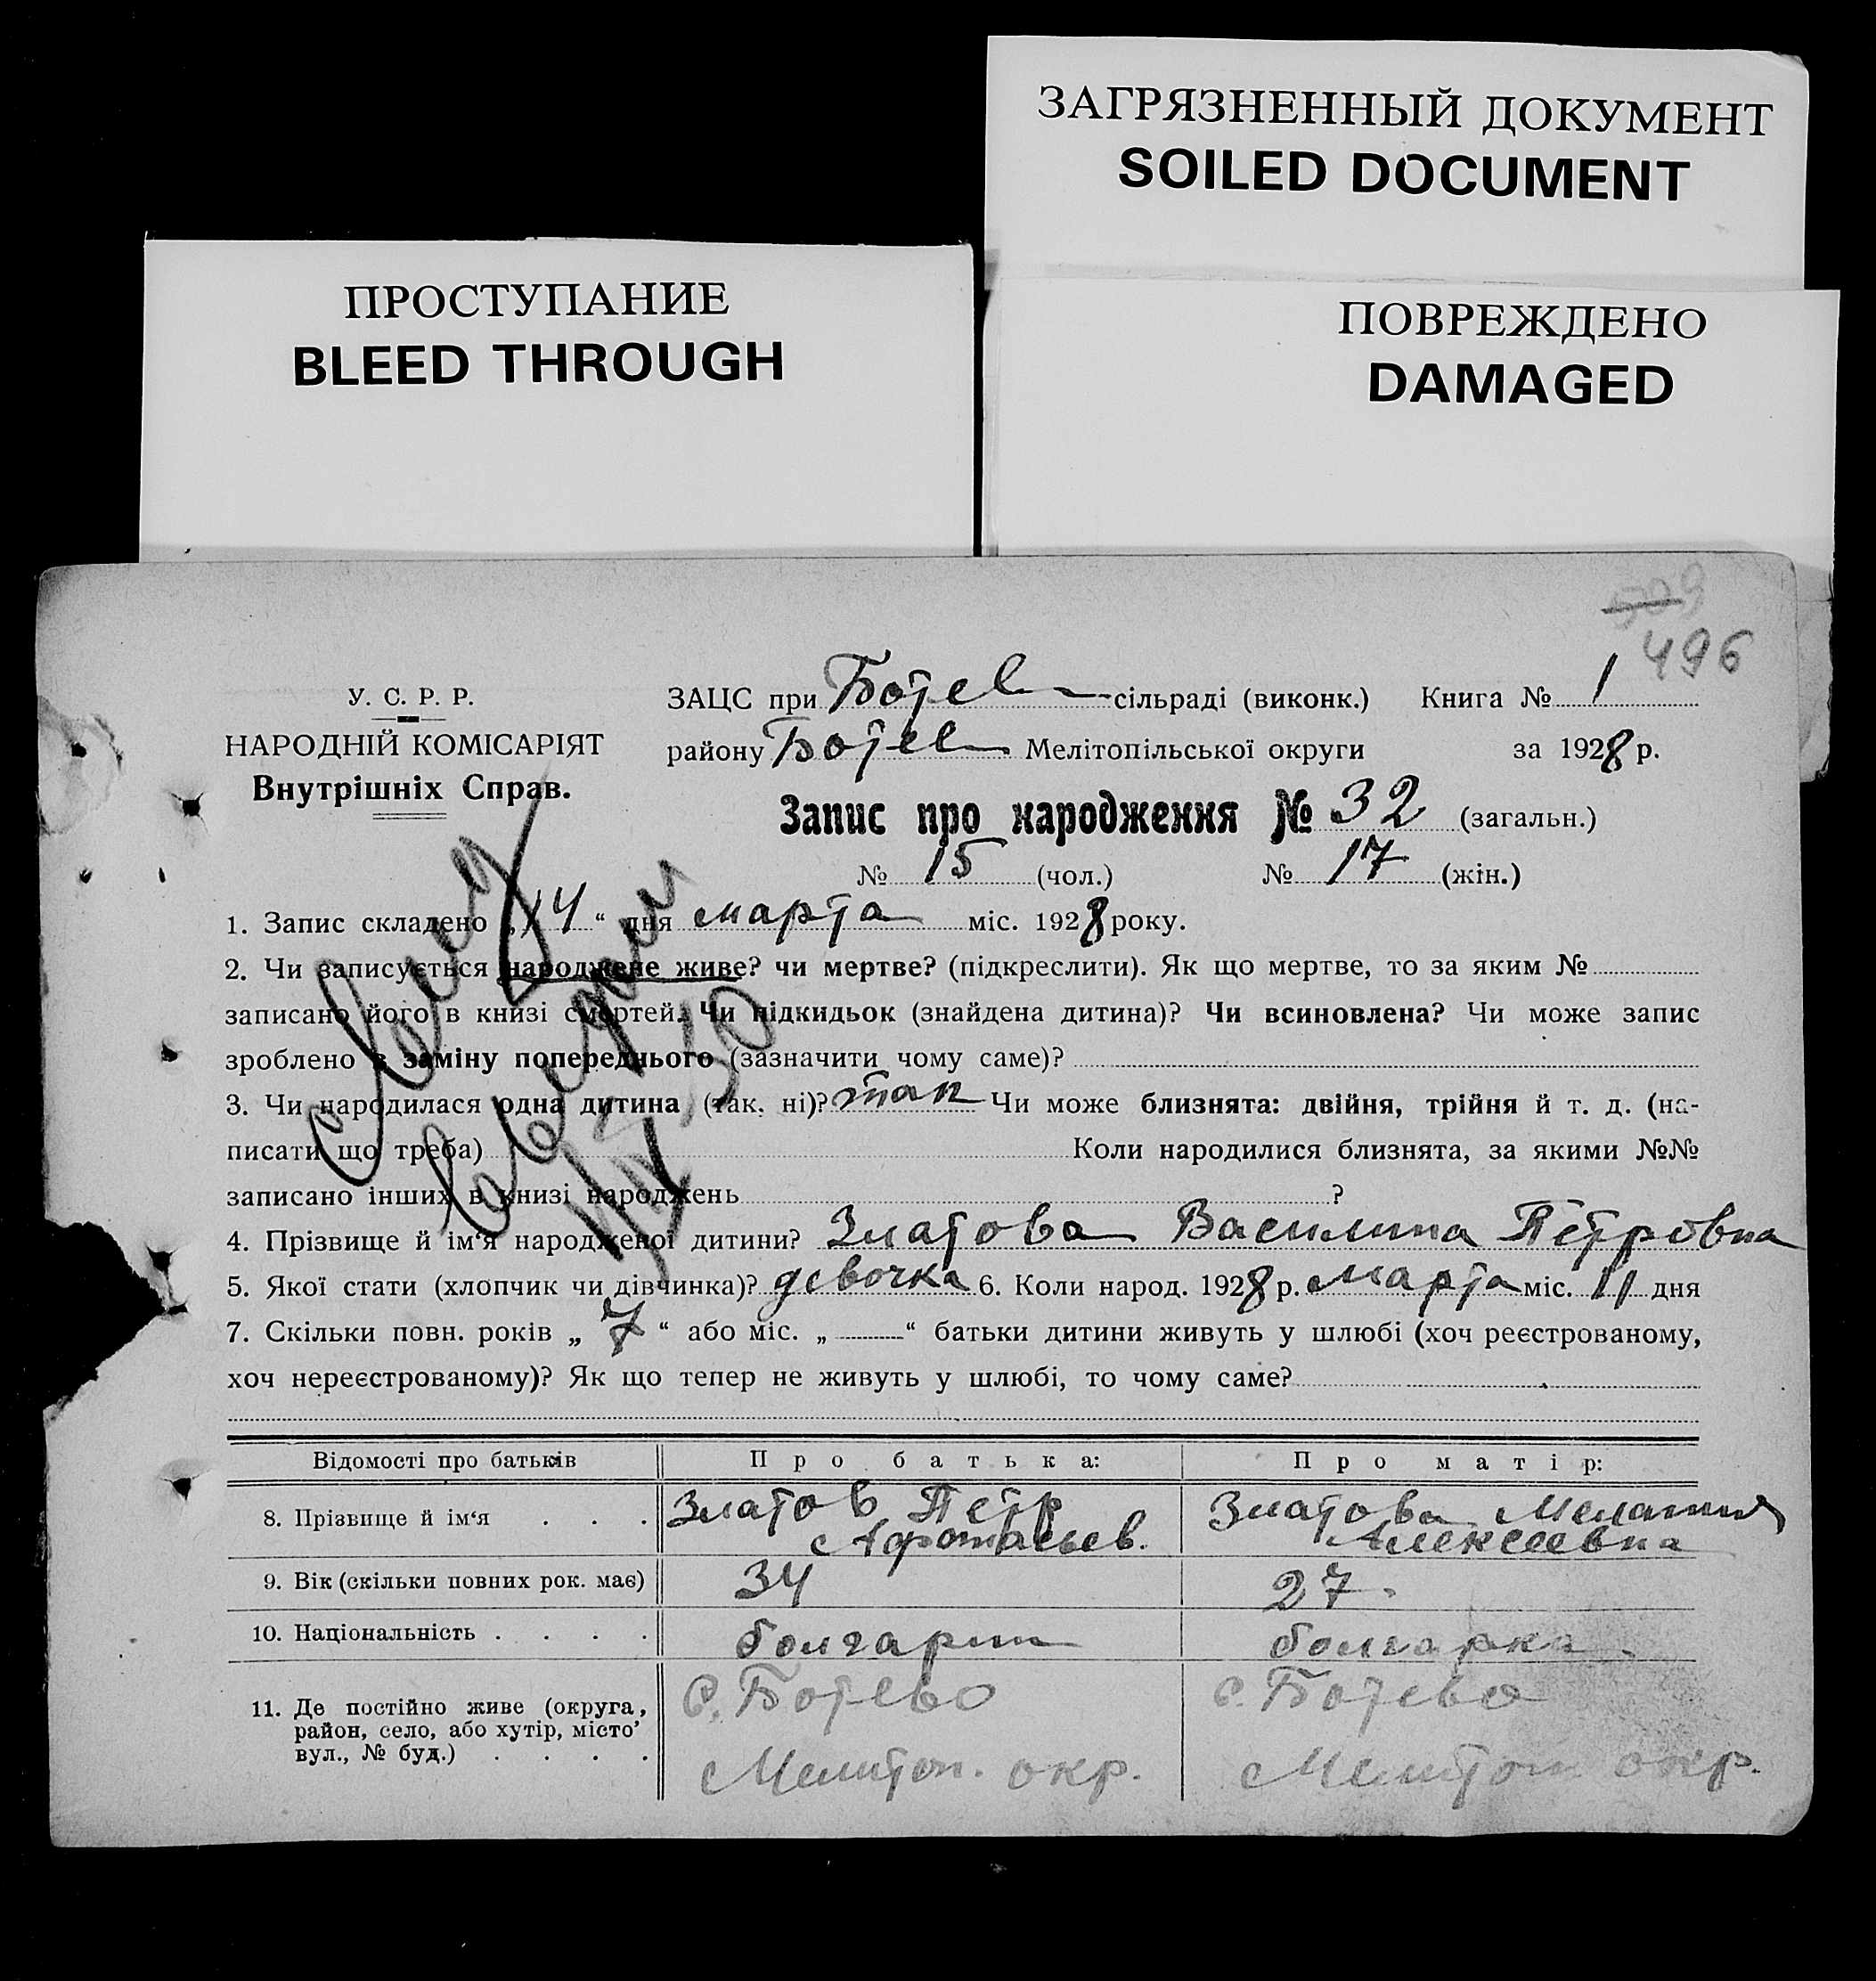 ЗАГРЯЗНЕННЫЙ ДОКУМЕНТ
SOILED DOCUMENT
ПРОСТУПАНИЕ
BLEED THROUGH
ПОВРЕЖДЕНО
DAMAGED
509
496
У. С. Р. Р.
НАРОДНІЙ КОМІСАРІЯТ
Внутрішніх Справ.
ЗАЦС при Ботев сільраді (виконк.) Книга № 1
району Ботев Мелітопільської округи за 1928 р.
Запис про народження № 32 (загальн.)
№ 15 (чол.) № 17 (жін.)
1. Запис складено „14“ дня марта міс. 1928 року.
2. Чи записується народжене живе? чи мертве? (підкреслити). Як що мертве, то за яким №
записано його в книзі смертей. Чи підкидьок (знайдена дитина)? Чи всиновлена? Чи може запис
зроблено в заміну попереднього (зазначити чому саме)?
3. Чи народилася одна дитина (так, ні)? так Чи може близнята: двійня, трійня й т. д. (на-
писати що треба) Коли народилися близнята, за якими №№
записано інших в книзі народжень ?
4. Прізвище й ім'я народженої дитини? Златова Василина Петровна
5. Якої стати (хлопчик чи дівчинка)? девочка 6. Коли народ. 1928 р. марта міс. 11 дня
7. Скільки повн. років „ 7 “ або міс. „ “ батьки дитини живуть у шлюбі (хоч реєстрованому,
хоч нереєстрованому)? Як що тепер не живуть у шлюбі, то чому саме?
Відомості про батьків Про батька: Про матір:
8. Прізвище й ім'я . . . Златов Петр Златова Мелания
Афонасьев. Алексеевна
9. Вік (скільки повних рок. має) 34 27.
10. Національність . . . . болгарин болгарка
11. Де постійно живе (округа, район, село, або хутір, місто, вул., № буд.) . . . . с. Ботево с. Ботево
Мелитоп. окр. Мелитоп окр.